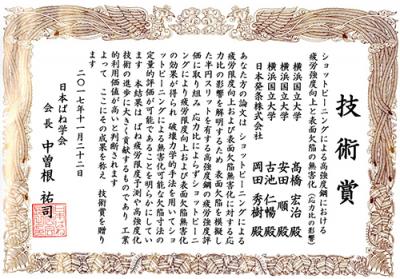 技術賞
ショットピーニングによる高強度鋼における
疲労強度向上と表面欠陥の無害化（応力比の影響）
横浜国立大学 髙橋宏治殿
横浜国立大学 安田順殿
横浜国立大学 古池仁暢殿
日本発条株式会社 岡田秀樹殿
あなた方の論文は ショットピーニングによる
疲労限度向上および表面欠陥無害化に対する応
力比の影響を解明するため 表面欠陥を模擬し
た半円スリットを有する高強度鋼の疲労強度評
価に取り組み 応力比によらずショットピーニ
ングにより疲労限度向上および表面欠陥無害化
の効果が得られ 破壊力学的手法を用いてショ
ットピーニングによる無害化可能な欠陥寸法の
定量的評価が可能であることを明らかにしてい
ます 本結果は ばね疲労限度予測や高強度化
技術の進歩に大きく貢献するものであり 工業
的利用価値が高いと判断されます
よって ここにその成果を称え 技術賞を贈り
ます
二〇一七年十一月二十二日
日本ばね学会
会長 中曽根祐司